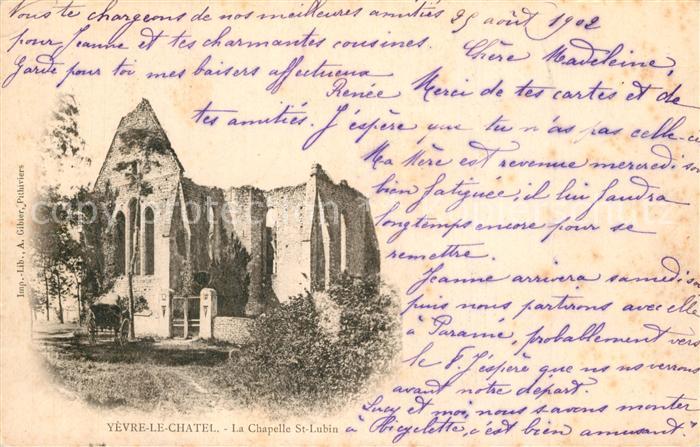 25 août 1902
Chère Madeleine,
Merci de tes cartes et de
tes amitiés. J'éspère que tu n'as pas celle-ci
Ma Mère est revenue mercredi soir
bien fatiguée; il lui faudra
longtemps encore pour se
remettre.
Jeanne arrivera samedi soir
puis nous partirons avec elle
à Paramé, probablement vers
le J'éspère que ns ns verrons
avant notre départ.
Lucy et moi, nous savons monter
à Bicyclette, c'est bien amusant
Nous te chargeons de nos meilleures amitiés
pour Jeanne et tes charmantes cousines.
Garde pour toi mes baisers affectueux
Renée
Imp.-Lib., A. Gibier, Pithiviers
YÈVRE-LE-CHATEL. - La Chapelle St-Lubin